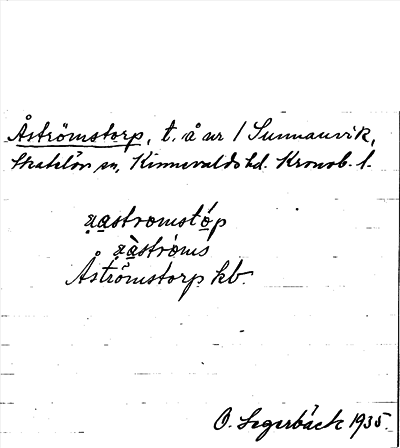 Åströmstorp, t. å ur 1 Sunnanvik,
Skatelöv sn, Kinnevalds hd. Kronob. l.
a̤astromstóp
a̤àstroms
Åströmstorp kb.
O. Segerbäck 1935.